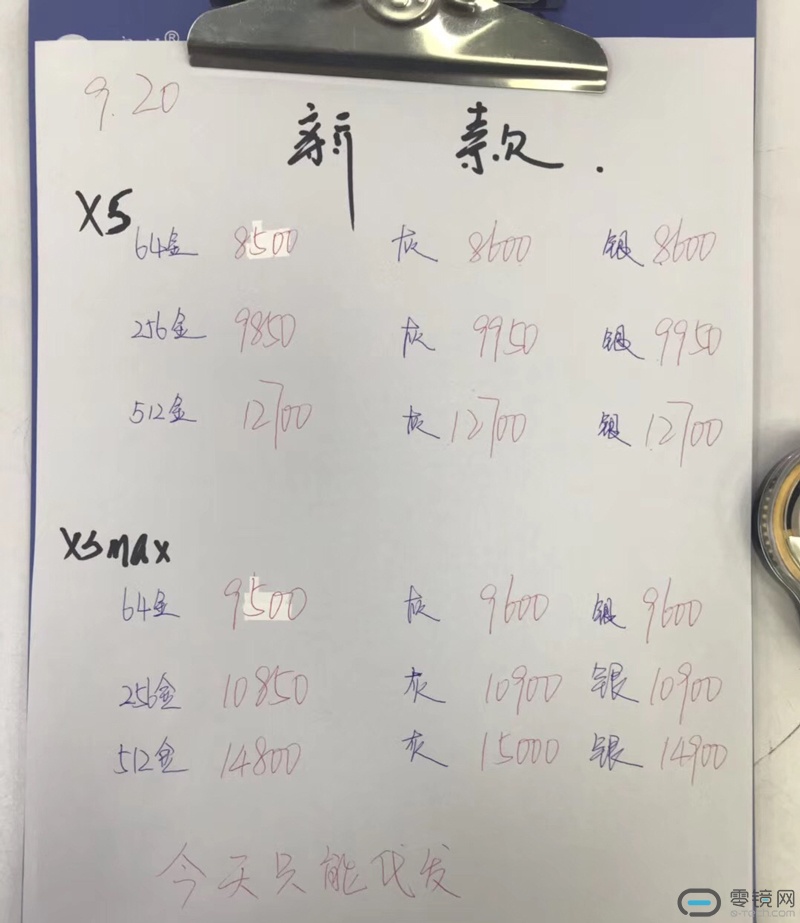 9.20
新款.
XS
64金 8500 灰 8600 银 8600
256金 9850 灰 9950 银 9950
512金 12700 灰 12700 银 12700
XSmax
64金 9500 灰 9600 银 9600
256金 10850 灰 10900 银 10900
512金 14800 灰 15000 银 14900
今天只能代发
零镜网